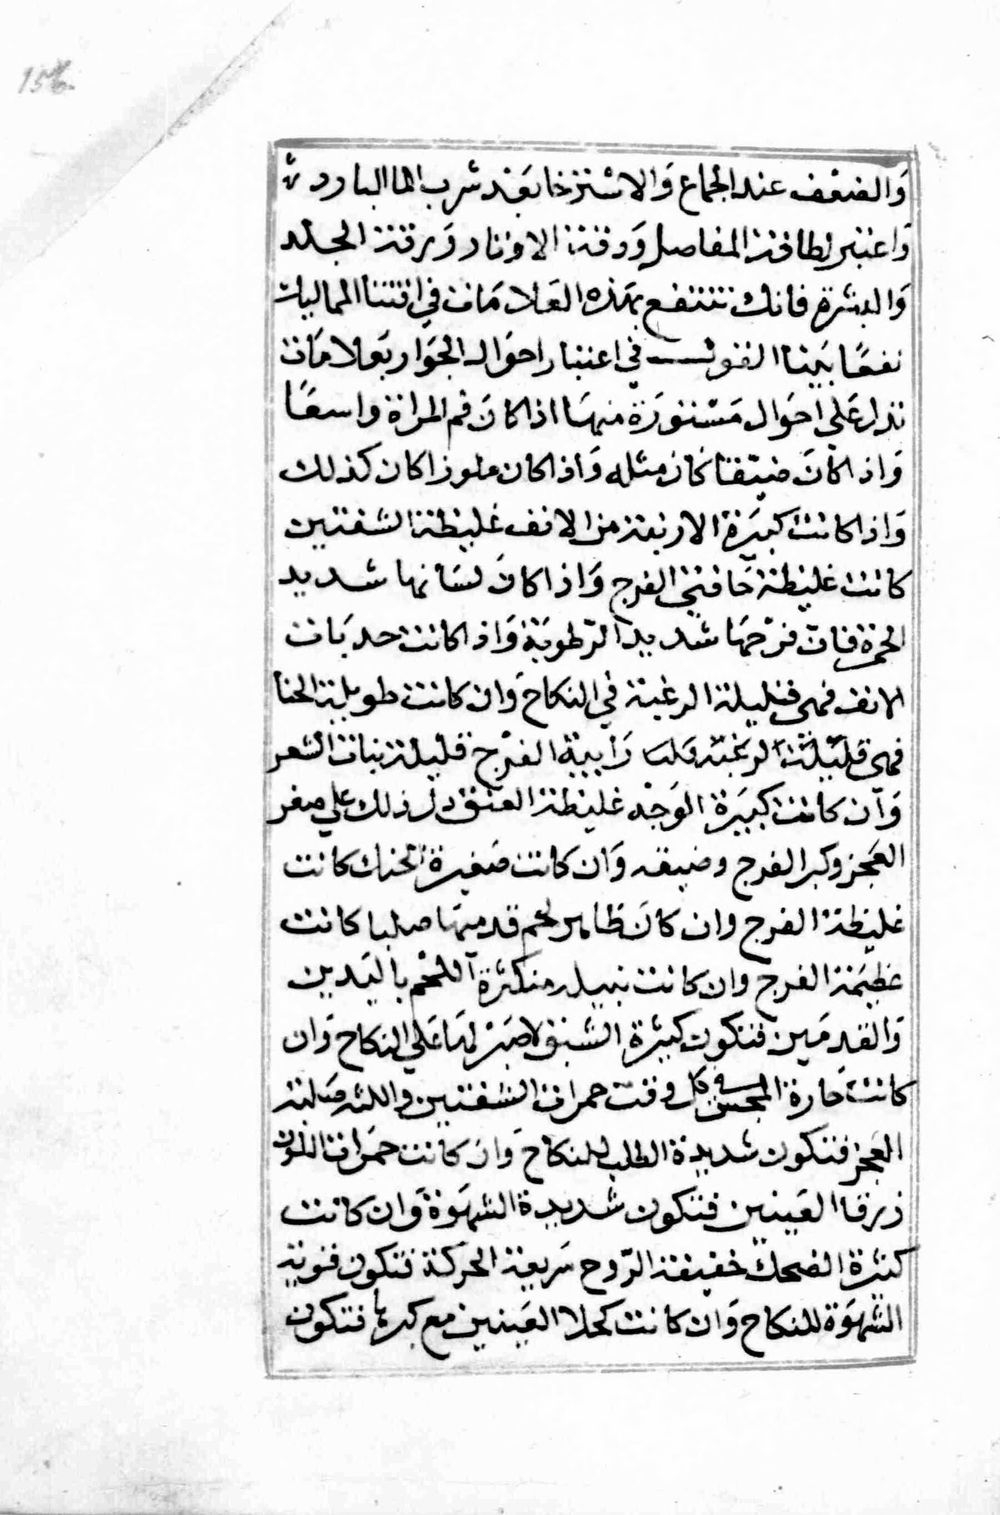 156
والضعف عند الجماع والاسترخا بعد شرب الما البارد
واعتبر لطافة المفاصل ودقة الاوتار ورقة الجلد
والبشرة فانك تنتفع بهذه العلامات في اقتنا المماليك
نفعا بينا القول في اعتبار احوال الجوار بعلامات
تدل علي احوال مستورة منها اذا كان فم المراة واسعا
واذا كان ضيقا كان مثله واذا كان ملوزا كان كذلك
واذا كانت كبيرة الارنبة من الانف غليظة الشفتين
كانت غليظة حافتي الفرج واذا كان لسانها شديد
الحمرة فان فرجها شديد الرطوبة واذا كانت حدبات
الانف فهي قليلة الرغبة في النكاح وان كانت طويلة الحنا
فهي قليلة الرغبة رابية الفرج قليلة نبات الشعر
وان كانت كبيرة الوجه غليظة العنق دل ذلك علي صغر
العجز وكبر الفرج وضيقه وان كانت صغيرة الحنك كانت
غليظة الفرج وان كان ظاهر لحم قدميها صلبا كانت
عظيمة الفرج وان كانت نبيله من كثرة اللحم باليدين
والقدمين فتكون كبيرة الشبق لا صبر لها علي النكاح وان
كانت حارة المجس في كل وقت حمرات الشفتين واللثه صلبة
العجز فتكون شديدة الطلب للنكاح وان كانت حمرات اللون
زرقا العينين فتكون شديدة الشهوة وان كانت
كثيرة الضحك خفيفة الروح سريعة الحركة فتكون قوية
الشهوة للنكاح وان كانت كحلا العينين مع كبرها فتكون